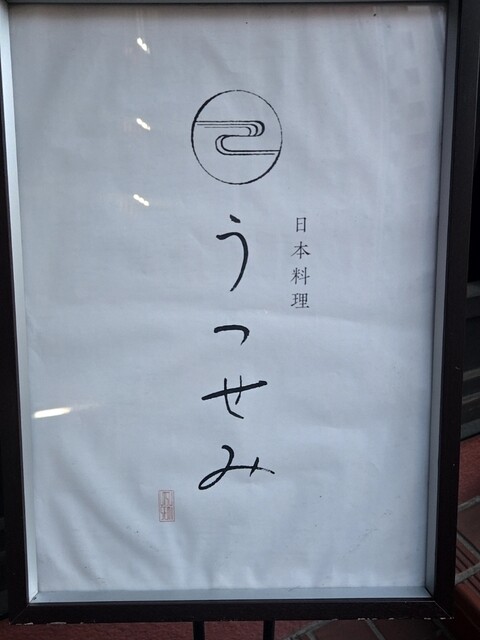 日本料理
うつせみ